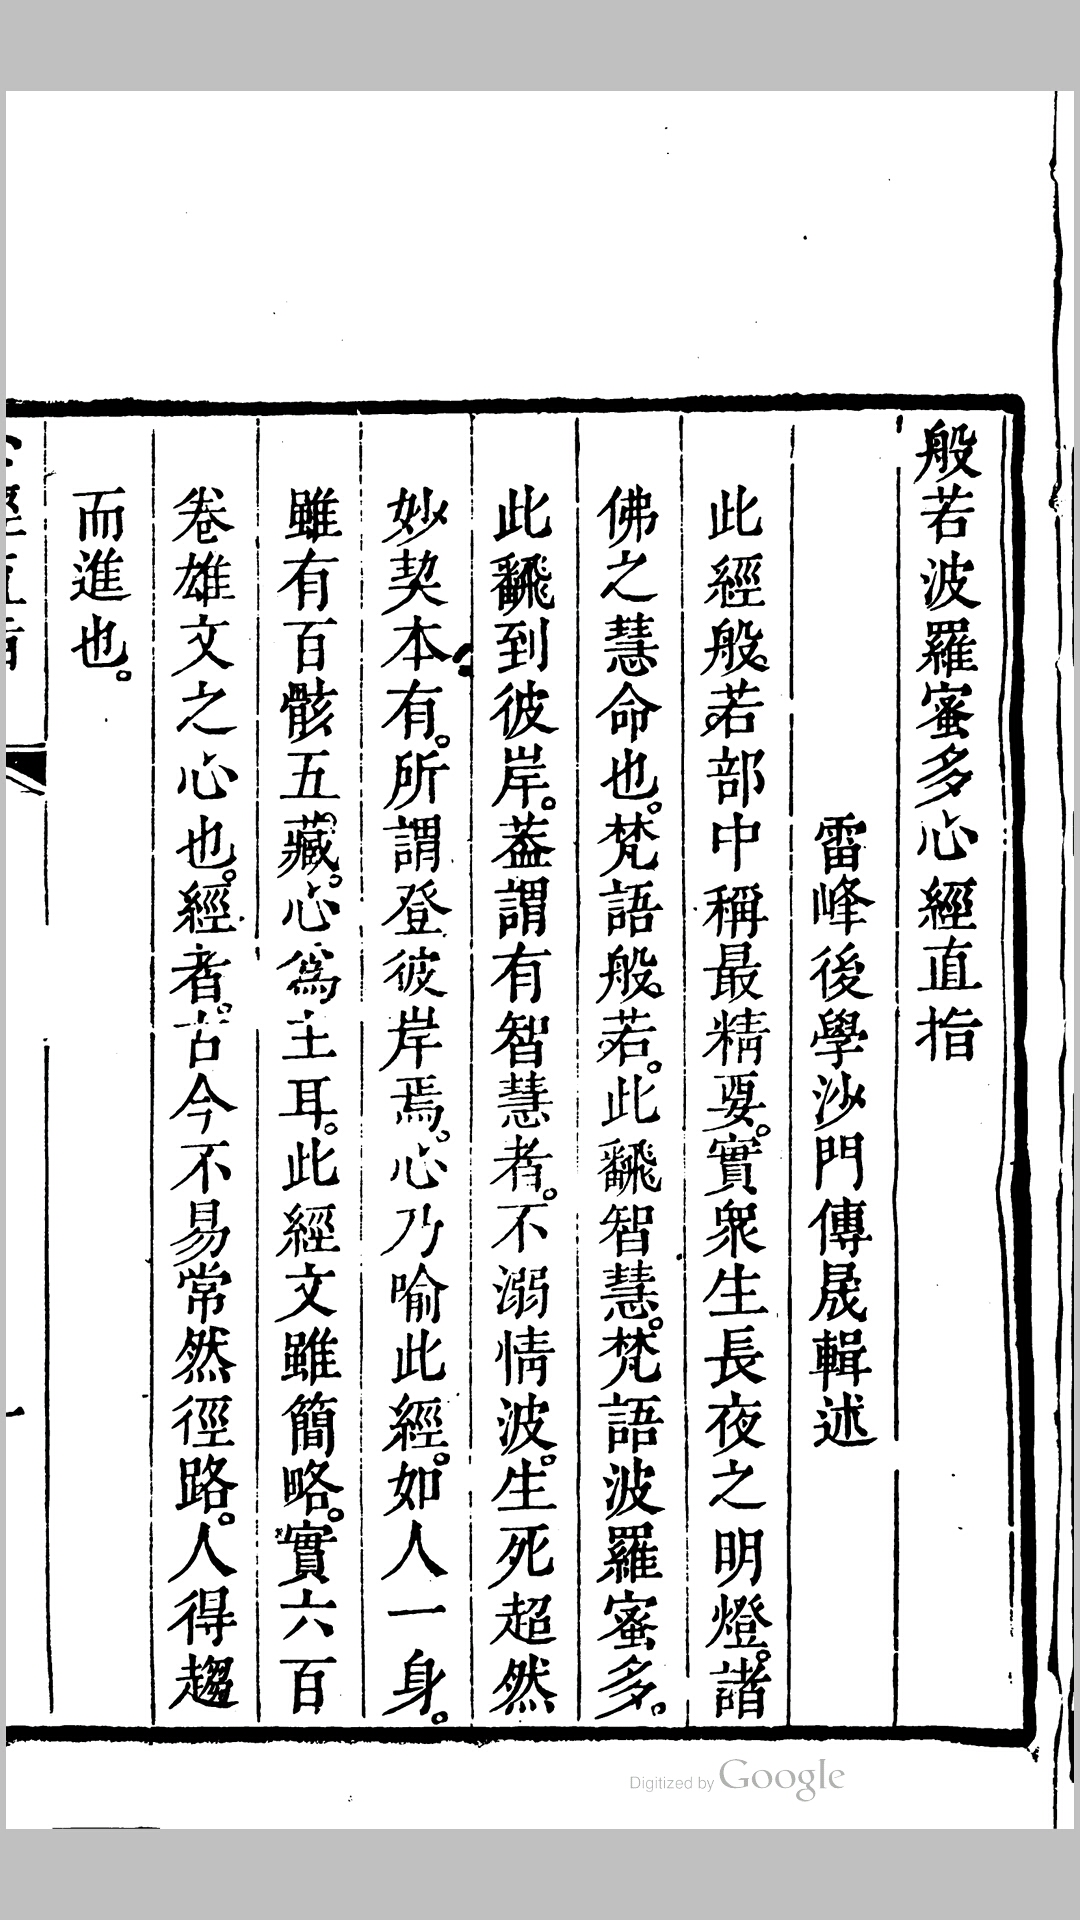 般若波羅蜜多心經直指
雷峰後學沙門傳晟輯述
此經般若部中稱最精要。實衆生長夜之明燈。諸
佛之慧命也。梵語般若。此翻智慧。梵語波羅蜜多。
此翻到彼岸。葢謂有智慧者。不溺情波。生死超然
妙契本有。所謂登彼岸焉。心乃喻此經。如人一身。
雖有百骸五藏。心爲主耳。此經文雖簡略。實六百
卷雄文之心也。經者。古今不易常然徑路。人得趨
而進也。
Digitized by Google